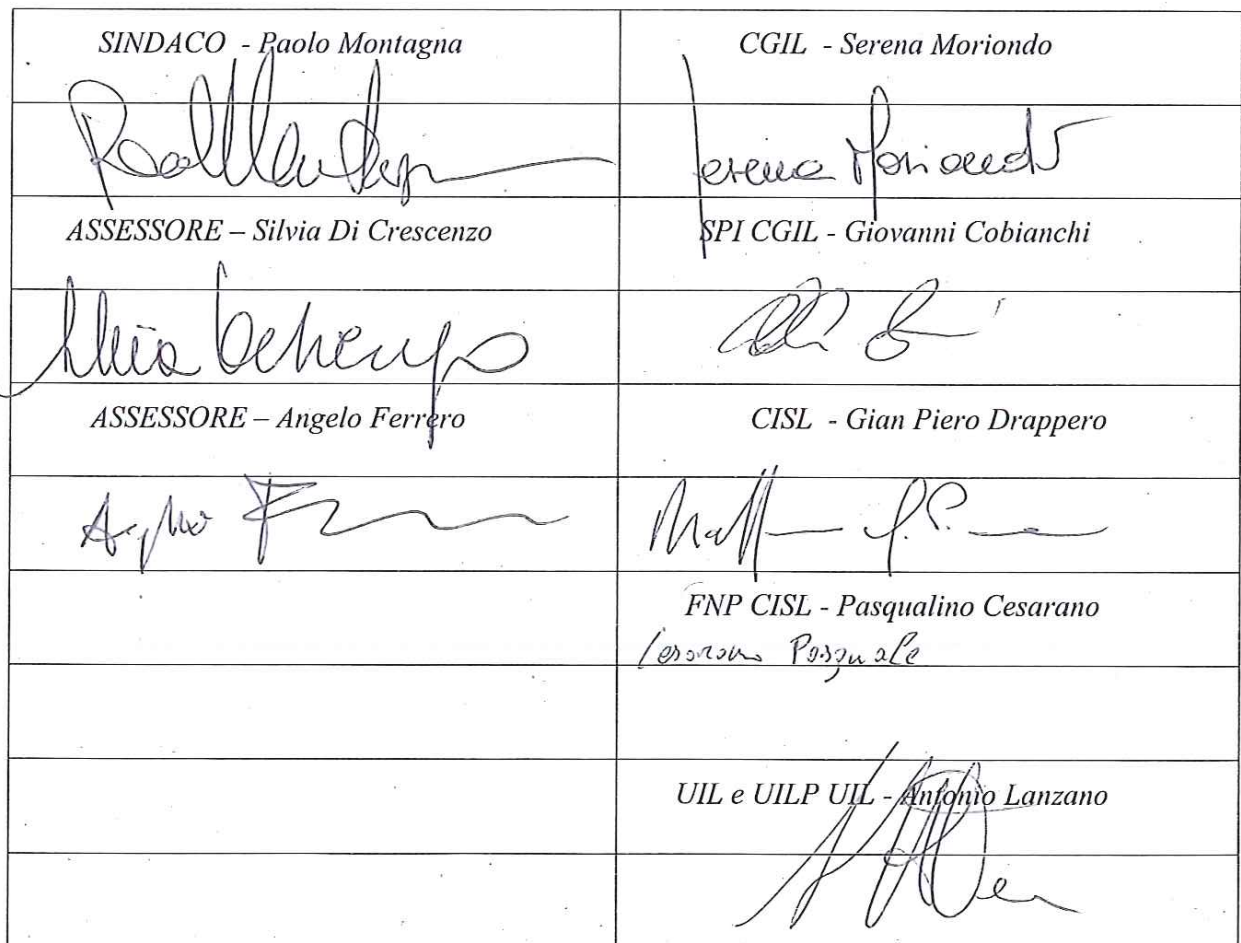 SINDACO - Paolo Montagna
CGIL - Serena Moriondo
Serena Moriondo
ASSESSORE – Silvia Di Crescenzo
SPI CGIL - Giovanni Cobianchi
ASSESSORE – Angelo Ferrero
CISL - Gian Piero Drappero
FNP CISL - Pasqualino Cesarano
Cesarano Pasquale
UIL e UILP UIL - Antonio Lanzano